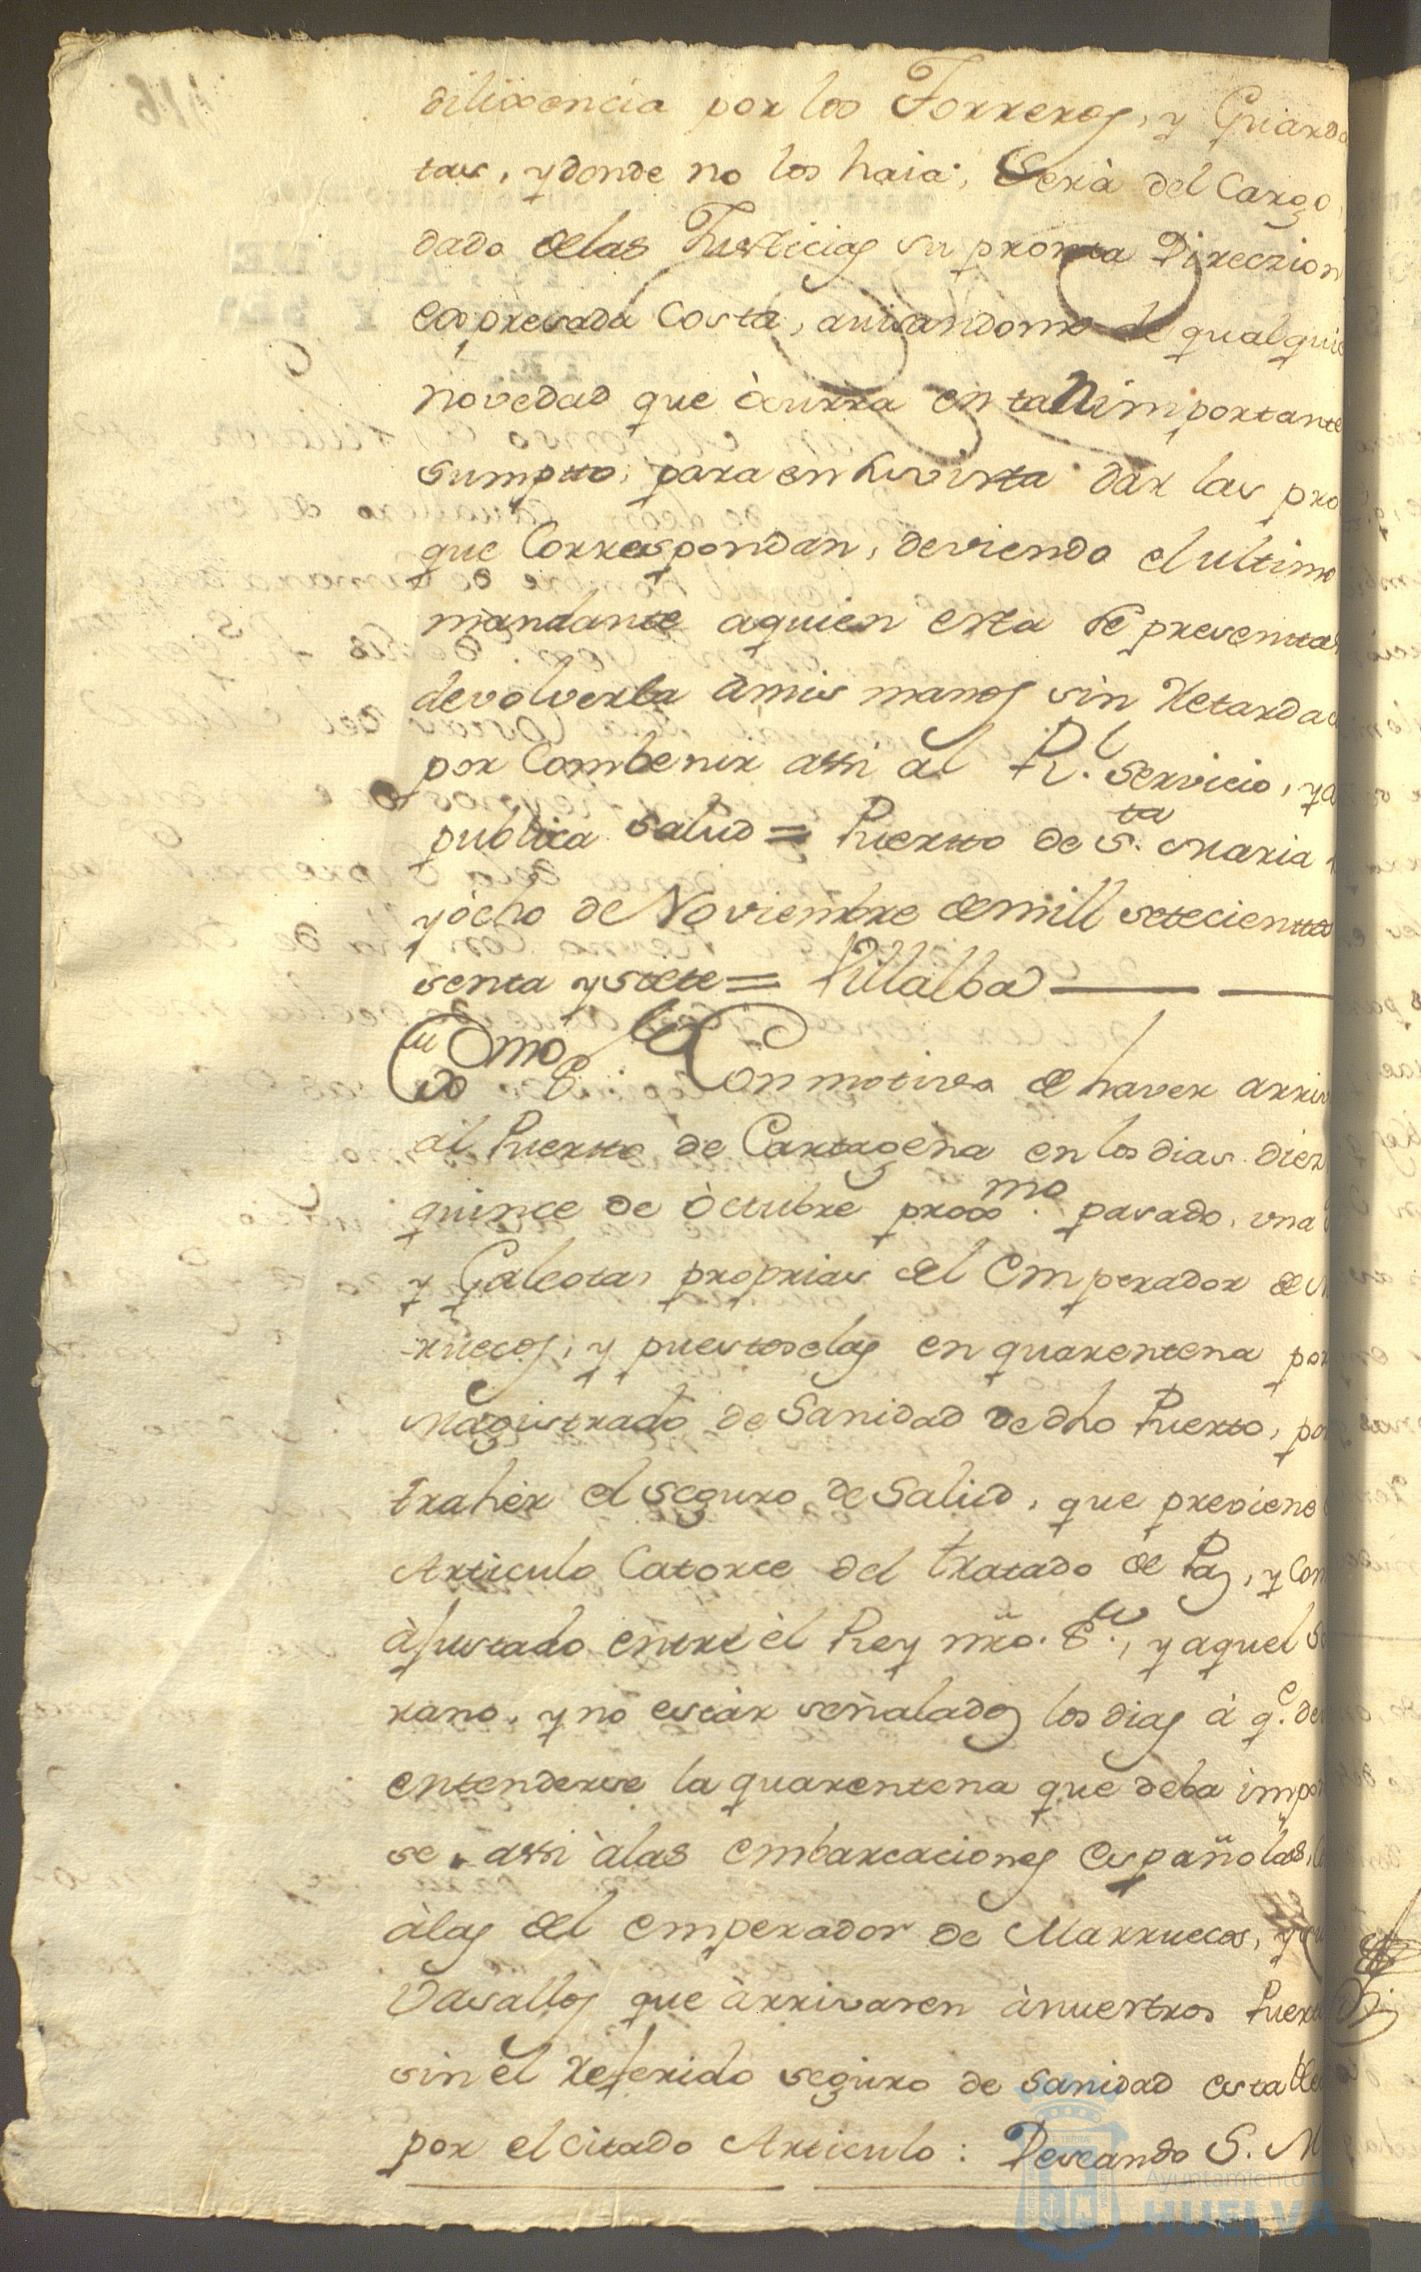 dilixencia por los Torreros, y Guarda
tas, y donde no los haia, Será del Cargo,
dado delas Justicias su pronta Direczion
expresada Costa, avisandome de qualquie
novedad que òcurra en tan importante
sumptto, para en su vista dar las pro
que Correspondan, deviendo el ultimo
mandante aquien esta se presentta
devolverla àmis manos sin Retarda
por Combenir assi al Rl. servicio, y a
publica salud = Puertto de Sta. Maria
y òcho de Noviembre demill setecienttos
senta y siete = Villalba
Exmo Sr Con motivo de haver arriv
al Puertto de Cartagena en los dias diez
quince de òctubre proxmo. pasado, una
y Galeota, proprias del Emperador de M
rruecos, y puestoselas en quarentena por
Magistrado de Sanidad de dho Puerto, por
traher el seguro de Salud, que previene
Articulo Catorce del tratado de Paz, y Com
àjustado entre èl Rey nro. Sr., y aquel So
rano, y no estàr señalados los dias à qe. de
entenderse la quarentena que deba impo
se, assi àlas embarcaciones Españolas,
àlas del emperador de Marruecos, y su
Vasallos que àrrivaren ànuestros Puer
sin el Referido seguro de sanidad estable
por el citado Articulo: Deseando S. M
Ayuntamiento de
HUELVA